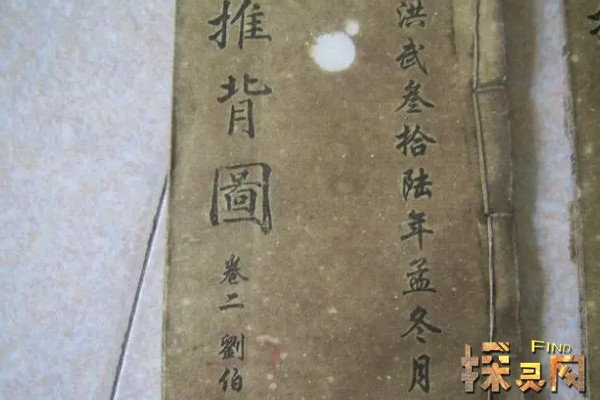 洪武叁拾陆年孟冬月
推背圖
卷二 劉伯
FIND
探灵网